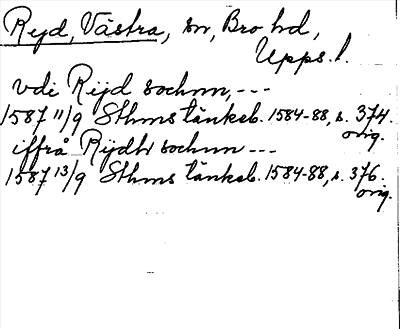 Ryd, Västra, sn, Bro hd,
Upps. l.
vdi Rijd sochnn, ---
1587 11/9 Sthms tänkeb. 1584-88, s. 374.
orig.
iffrå Rijdh sochnn ---
1587 13/9 Sthms tänkeb. 1584-88, s. 376.
orig.